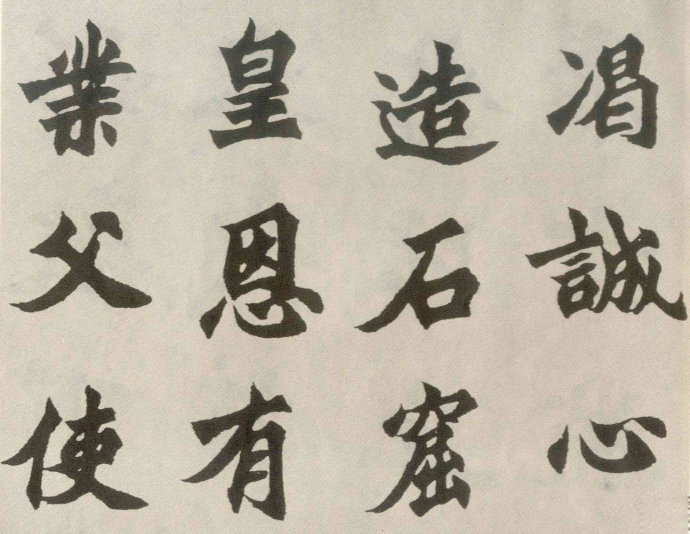 渴誠心
造石窟
皇恩有
業父使